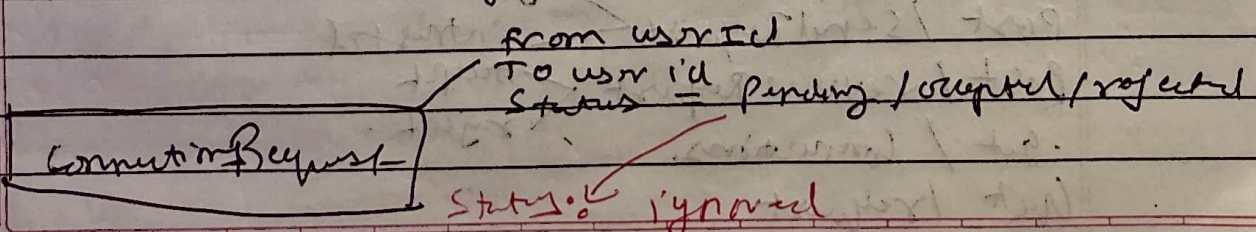 from userId
To user id
Status = pending / accepted / rejected
ConnectionRequest
Status: ignored